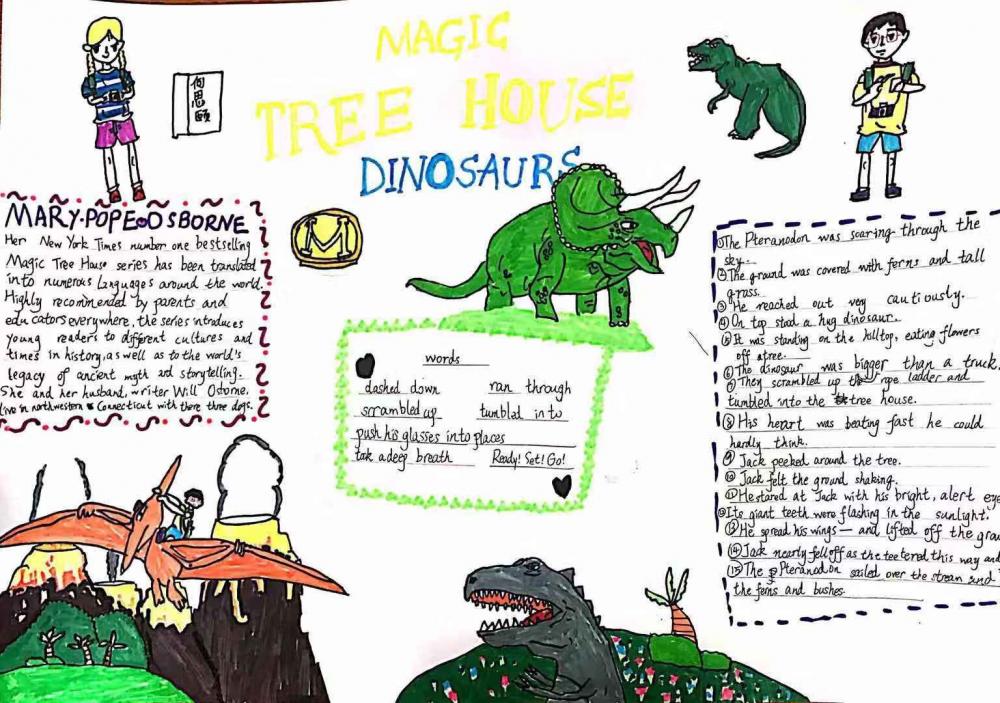 MAGIC
TREE HOUSE
DINOSAURS
何思颐
M
MARY·POPE·OSBORNE
Her New York Times number one bestselling
Magic Tree House series has been translated
into numerous languages around the world.
Highly recommended by parents and
educators everywhere, the series introduces
young readers to different cultures and
times in history, as well as to the world's
legacy of ancient myth and storytelling.
She and her husband, writer Will Osborne.
live in northwestern Connecticut with there three dogs.
words
dashed down ran through
scrambled up tumbled into
push his glasses into places
tak a deep breath Ready! Set! Go!
①The Pteranodon was soaring through the
sky.
②The ground was covered with ferns and tall
grass.
③ He reached out very cautiously.
④ On top stood a hug dinosaur.
⑤ It was standing on the hilltop, eating flowers
off a tree.
⑥ The dinosaur was bigger than a truck.
⑦ They scrambled up the rope ladder and
tumbled into the tree house.
⑧ His heart was beating fast he could
hardly think.
⑨ Jack peeked around the tree.
⑩ Jack felt the ground shaking.
⑪ He stared at Jack with his bright, alert eye
⑫ Its giant teeth were flashing in the sunlight.
⑬ He spread his wings — and lifted off the grou
⑭ Jack nearly fell off as the teetered this way and
⑮ The Pteranodon sailed over the stream and
the ferns and bushes